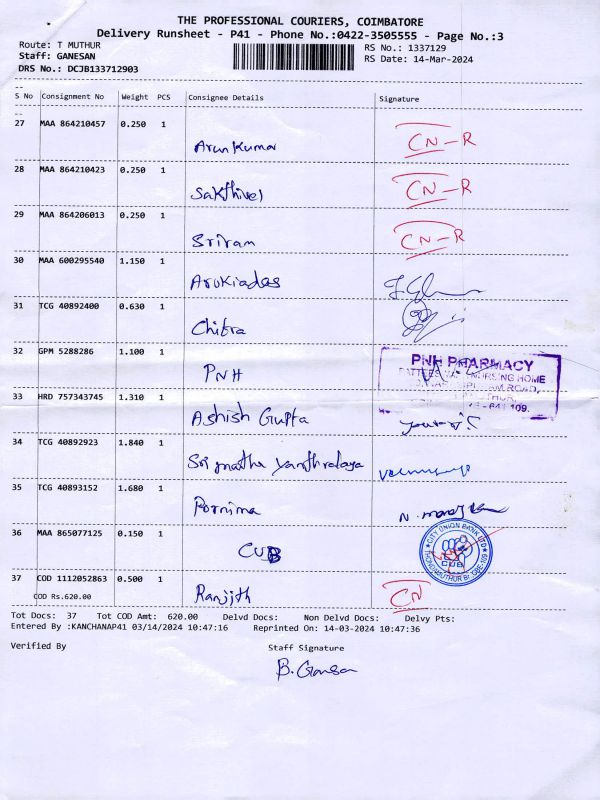 THE PROFESSIONAL COURIERS, COIMBATORE
Delivery Runsheet - P41 - Phone No.:0422-3505555 - Page No.:3
Route: T MUTHUR RS No.: 1337129
Staff: GANESAN RS Date: 14-Mar-2024
DRS No.: DCJB133712903
S No Consignment No Weight PCS Consignee Details Signature
27 MAA 864210457 0.250 1
Arun Kumar CN-R
28 MAA 864210423 0.250 1
Sakthivel CN-R
29 MAA 864206013 0.250 1
Sriram CN-R
30 MAA 600295540 1.150 1
Arokiadas
31 TCG 40892400 0.630 1
Chitra
32 GPM 5288286 1.100 1
PNH PNH PHARMACY
NURSING HOME
ROAD,
33 HRD 757343745 1.310 1
Ashish Gupta
34 TCG 40892923 1.840 1
Sri matha yanthralaya
35 TCG 40893152 1.680 1
Pornima
36 MAA 865077125 0.150 1
CUB CITY UNION BANK LTD
CUB
37 COD 1112052863 0.500 1
COD Rs.620.00 Ranjith CN
Tot Docs: 37 Tot COD Amt: 620.00 Delvd Docs: Non Delvd Docs: Delvy Pts:
Entered By :KANCHANAP41 03/14/2024 10:47:16 Reprinted On: 14-03-2024 10:47:36
Verified By Staff Signature